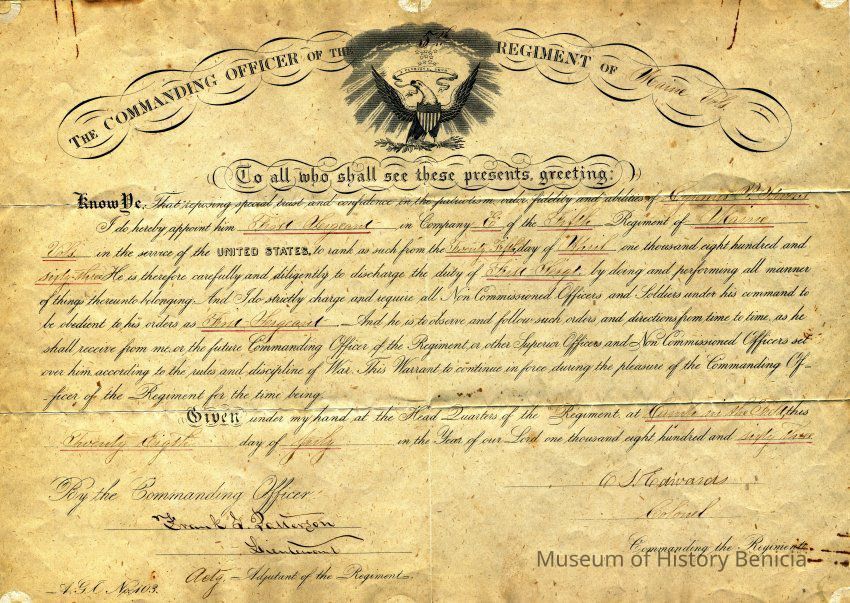 THE COMMANDING OFFICER OF THE 5th REGIMENT OF Maine Vols.
To all who shall see these presents, greeting:
Know Ye, That reposing special trust and confidence in the patriotism, valor, fidelity and abilities of
I do hereby appoint him First Sergeant in Company E of the Fifth Regiment of Maine
Vols in the service of the UNITED STATES, to rank as such from the Twenty Fifth day of one thousand eight hundred and
sixty three He is therefore carefully and diligently to discharge the duty of First Sergt by doing and performing all manner
of things thereunto belonging. And I do strictly charge and require all Non Commissioned Officers and Soldiers under his command to
be obedient to his orders as First Sergeant And he is to observe and follow such orders and directions from time to time, as he
shall receive from me, or the future Commanding Officer of the Regiment, or other Superior Officers and Non Commissioned Officers set
over him, according to the rules and discipline of War. This Warrant to continue in force during the pleasure of the Commanding Of-
ficer of the Regiment for the time being.
Given under my hand at the Head Quarters of the Regiment, at in the field this
Twenty Eighth day of July in the Year of our Lord one thousand eight hundred and sixty three
C S Edwards
By the Commanding Officer:
Colonel
Frank G. Patterson
Lieutenant
Commanding the Regiment.
Actg. Adjutant of the Regiment.
A.G.O. No. 103.
Museum of History Benicia